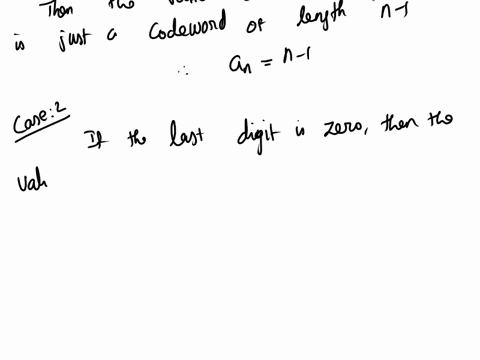 Then the
is just a codeword of length n-1
∴ an = n-1
Case:2
If the last digit is zero, then the
vali